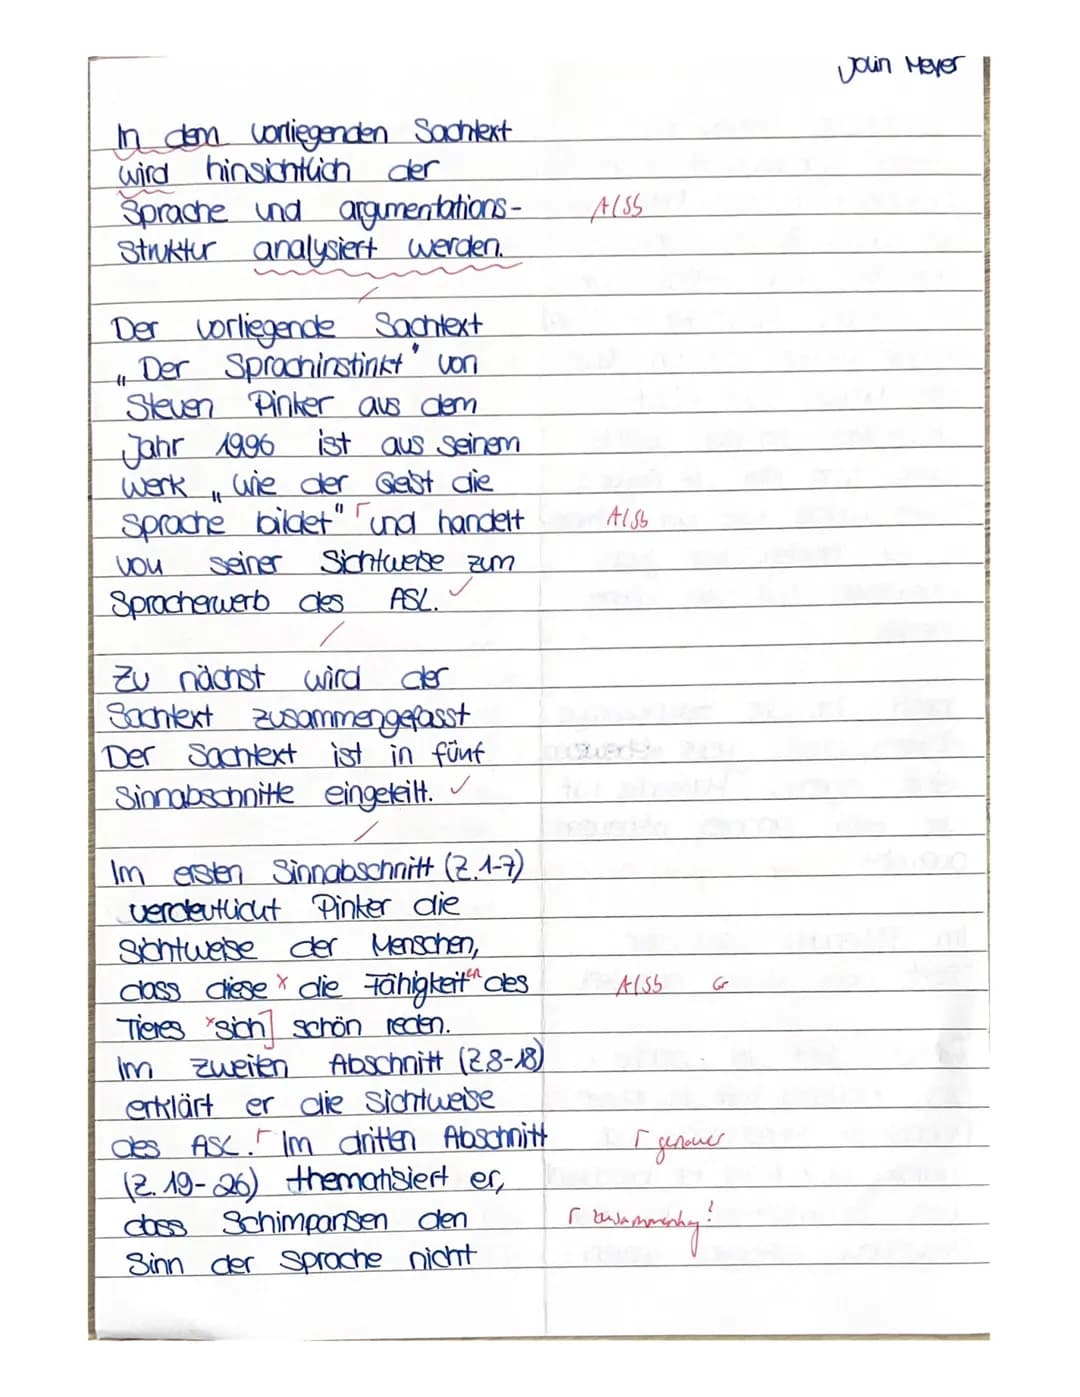 Jolin Meyer
In dem vorliegenden Sachtext
wird hinsichtlich der
Sprache und argumentations- A/Sb
struktur analysiert werden.
Der vorliegende Sachtext
„Der Sprachinstinkt" von
Steven Pinker aus dem
Jahr 1996 ist aus seinem
Werk „Wie der Geist die
Sprache bildet" und handelt A/Sb
von seiner Sichtweise zum
Spracherwerb des ASL. ✓
Zu nächst wird der
Sachtext zusammengefasst
Der Sachtext ist in fünf
Sinnabschnitte eingeteilt. ✓
Im ersten Sinnabschnitt (Z.1-7)
verdeutlicht Pinker die
Sichtweise der Menschen,
dass diese x die Fähigkeiten des A/Sb Gr
Tieres x sich] schön reden.
Im zweiten Abschnitt (Z.8-18)
erklärt er die Sichtweise
des ASL. Γ Im dritten Abschnitt Γ genauer
(Z. 19-26) thematisiert er,
dass Schimpansen den Γ Zusammenhg?
Sinn der Sprache nicht